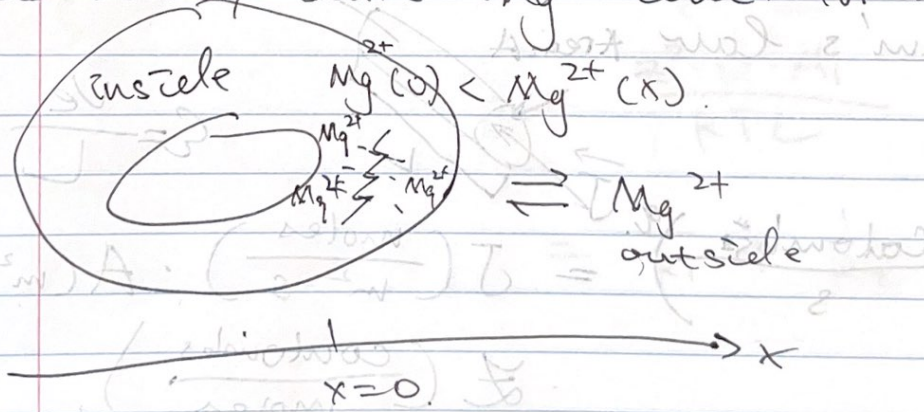 inside Mg²⁺(0) < Mg²⁺(x).
Mg²⁺
Mg²⁺ Mg²⁺ ⇌ Mg²⁺
outside
x
x=0.